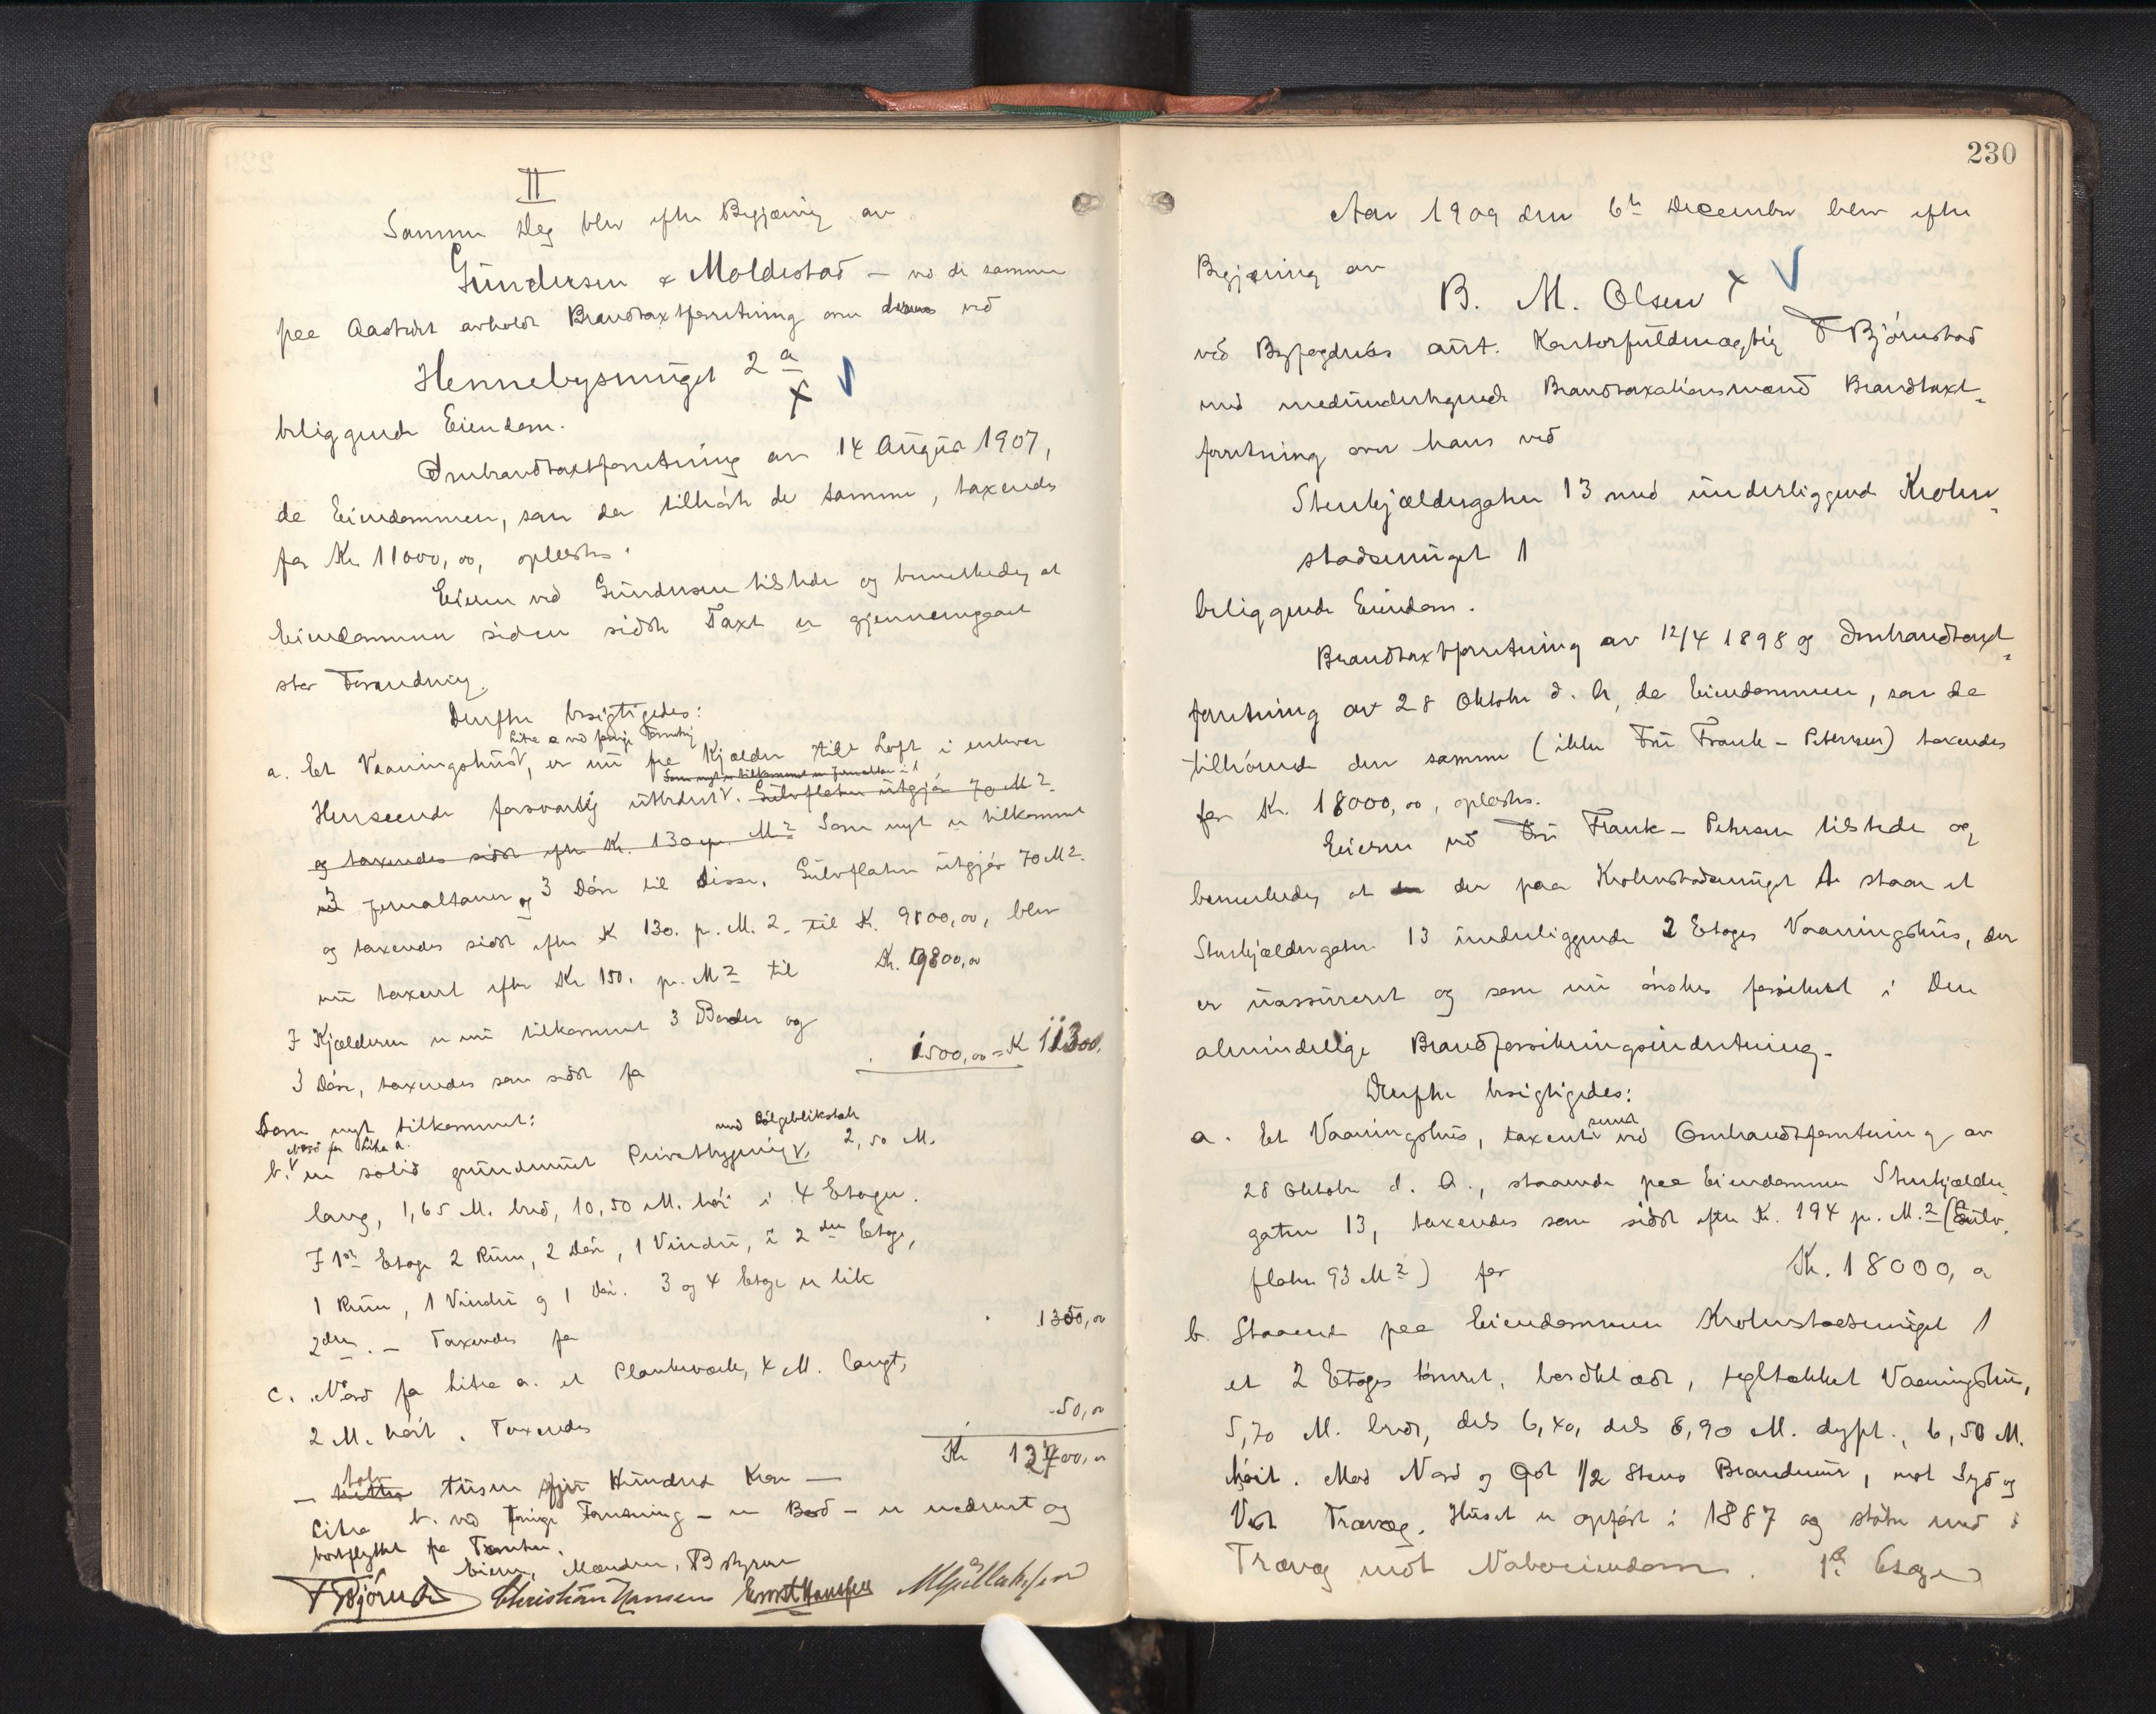 II
Samme Dag blev efter Begjæring av
Gundersen & Moldestad — av de samme
paa Aastedet avholdt Brandtaxtforretning over deres ved
Hennebysmuget 2 a
x √
beliggende Eiendom.
Ombrandtaxtforretning av 14 August 1907,
da Eiendommen, som da tilhørte de samme, taxendes
for Kr. 11000,00, oplæstes.
Eieren ved Gundersen tilstede og bemerkedes, at
Eiendommen siden sidste Taxt er gjennemgaaet
stor Forandring.
Derefter besigtigedes:
Litra a ved forrige Forretning
a. Et Vaaningshus V, er nu fra Kjælder til Loft i enhver
Som nyt er tilkommet en Jernaltan i 1
Henseende forsvarlig utbedret V. Gulvflaten utgjør 70 M2.
og taxendes sidst efter Kr. 130 pr. M2 Som nyt er tilkommet
3 Jernaltaner og 3 Døre til disse. Gulvflaten utgjør 70 M2.
og taxendes sidst efter K 130. p. M. 2. til K. 9800,00, blev
nu taxeret efter Kr 150. p. M2 til Kr. 9800,00
I Kjælderen er nu tilkommet 3 Boder og
3 Døre, taxendes som sidst for 1500,00 = K 11300,
Som nyt tilkommet:
Nord for Litra a. med Bølgebliktak
b. V en solid grundmuret Privatbygning V, 2,50 M.
lang, 1,65 M. bred, 10,50 M. høi i 4 Etager.
I 1ste Etage 2 Rum, 2 Døre, 1 Vindu, i 2den Etage,
1 Rum, 1 Vindu og 1 Dør. 3 og 4 Etage er lik
2den. — Taxendes for 1350,00
c. Nord for Litra a. et Plankeværk, 4 M. langt,
2 M. høit. Taxendes 50,00
Kr 12700,00
tolv
— tusen syv Hundred Kron —
Litra b. ved forrige Forretning — en Bod — er nedrevet og
bortflyttet fra Tomten.
Eieren, Mændene, Bstyreren
F Bjørnstad Christian Hansen Ernst Hansen
230
Aar 1909 den 6te December blev efter
Begjæring av
B. M. Olsen x √
ved Byfogdens aut. Kontorfuldmægtig F Bjørnstad
med medundertegnede Brandtaxationsmænd Brandtaxt-
forretning over hans ved
Stenkjældergaten 13 med underliggende Krohn-
stadsmuget 1
beliggende Eiendom.
Brandtaxtforretning av 12/4 1898 og Ombrandtaxt-
forretning av 28 Oktober d. A, da Eiendommen, som da
tilhørende den samme (ikke Fru Frank-Petersen) taxendes
for Kr. 18000,00, oplæstes.
Eieren ved Fru Frank-Petersen tilstede og
bemerkedes, at der paa Krohnstadsmuget 1 staar et
Stenkjældergaten 13 underliggende 2 Etages Vaaningshus, der
er uassureret og som nu ønskes forsikret i Den
almindelige Brandforsikringsindretning.
Derefter besigtigedes:
senest
a. Et Vaaningshus, taxeret ved Ombrandtforretning av
28 Oktober d. A., staaende paa Eiendommen Stenkjælder-
gaten 13, taxendes som sidst efter K. 194 p. M.2 (Gulv-
flaten 93 M2) for Kr. 18000,00
b. Staaende paa Eiendommen Krohnstadsmuget 1
et 2 Etages tømret, bordklædt, tegltækket Vaaningshus,
5,70 M. bredt, dels 6,40, dels 6,90 M. dypt., 6,50 M.
høit. Mod Nord og Øst 1/2 Stens Brandmur, mot Syd og
Vest Trævæg. Huset er opført i 1887 og støter med
Trævæg mot Naboeiendom. 1ste Etage